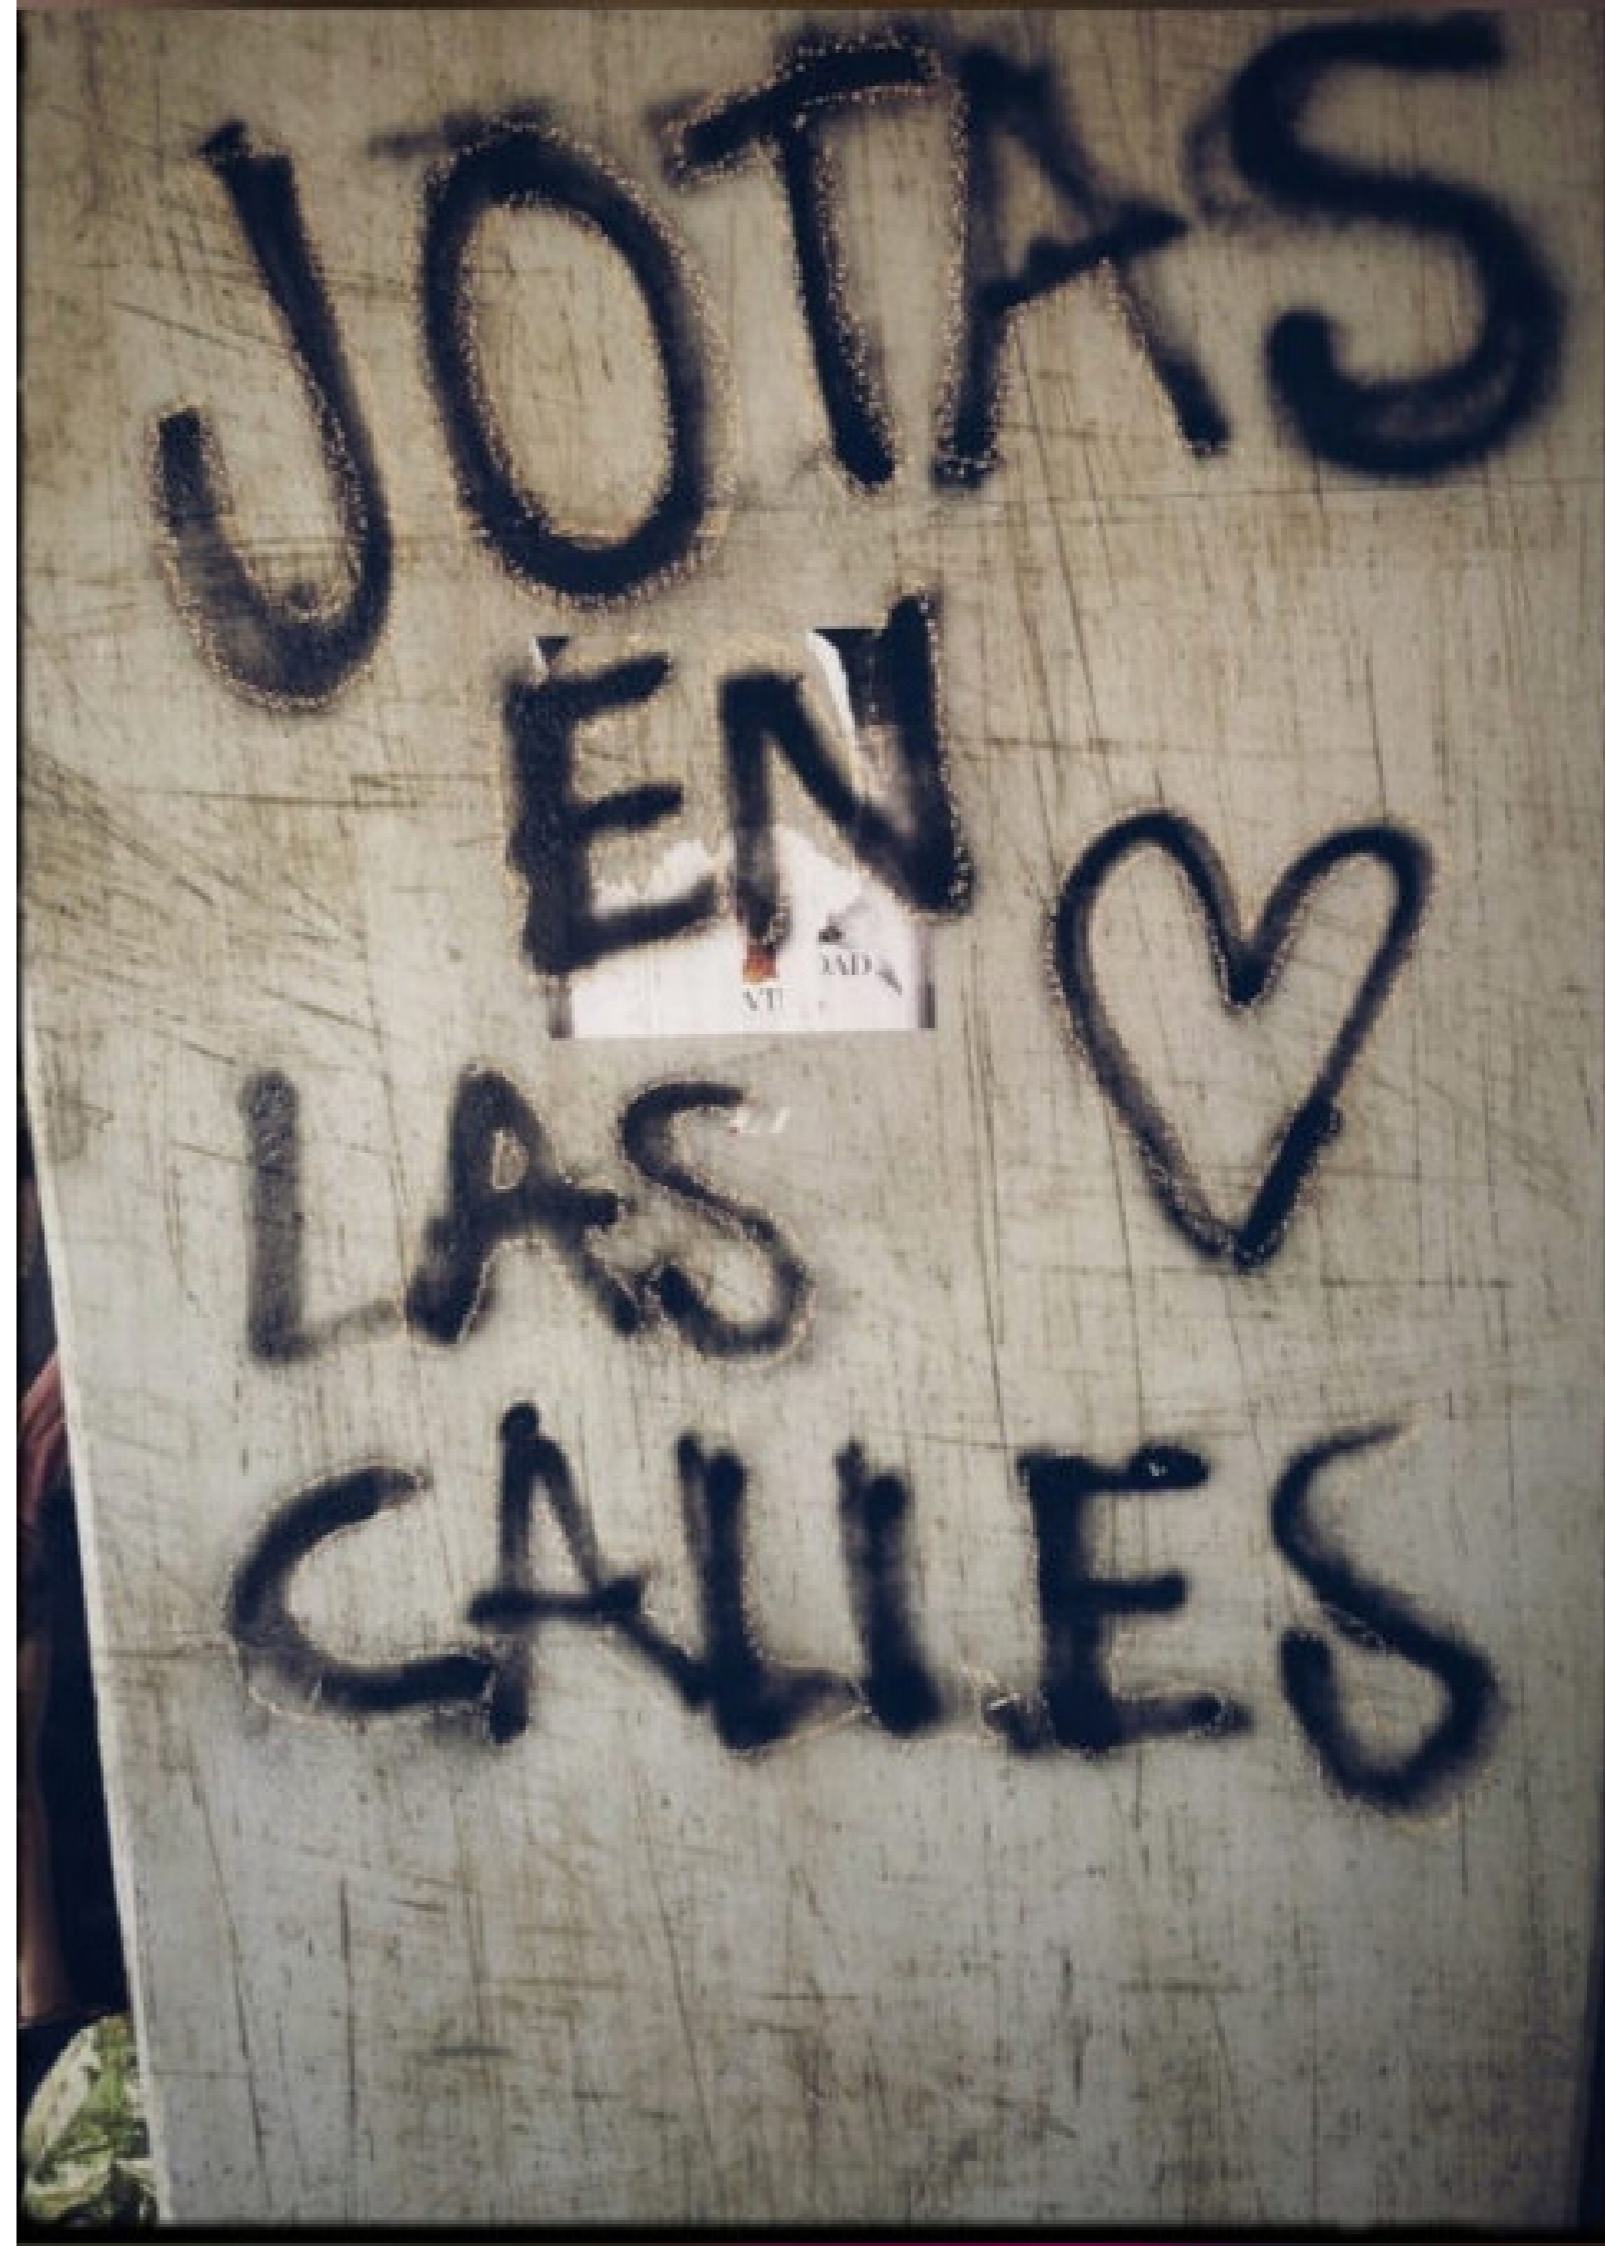 JOTAS
EN
LAS
CALLES